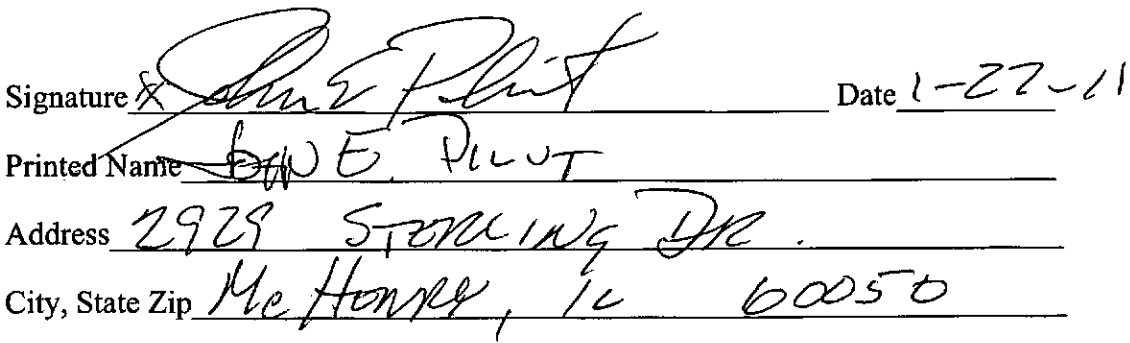 Signature X John E Pilut Date 1-27-11
Printed Name John E. PILUT
Address 2929 STERLING DR.
City, State Zip McHENRY, IL 60050